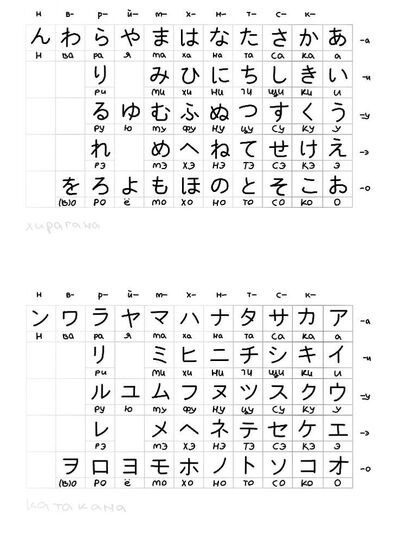 н- в- р- й- м- х- н- т- с- к-
ん わ ら や ま は な た さ か あ -а
н ва ра я ма ха на та са ка а
り み ひ に ち し き い -и
ри ми хи ни чи щи ки и
る ゆ む ふ ぬ つ す く う -у
ру ю му фу ну цу су ку у
れ め へ ね て せ け え -э
рэ мэ хэ нэ тэ сэ кэ э
を ろ よ も ほ の と そ こ お -о
(в)о ро ё мо хо но то со ко о
хирагана
н в- р- й- м- х- н- т- с- к-
ン ワ ラ ヤ マ ハ ナ タ サ カ ア -а
н ва ра я ма ха на та са ка а
リ ミ ヒ ニ チ シ キ イ -и
ри ми хи ни чи щи ки и
ル ユ ム フ ヌ ツ ス ク ウ -у
ру ю му фу ну цу су ку у
レ メ ヘ ネ テ セ ケ エ -э
рэ мэ хэ нэ тэ сэ кэ э
ヲ ロ ヨ モ ホ ノ ト ソ コ オ -о
(в)о ро ё мо хо но то со ко о
катакана